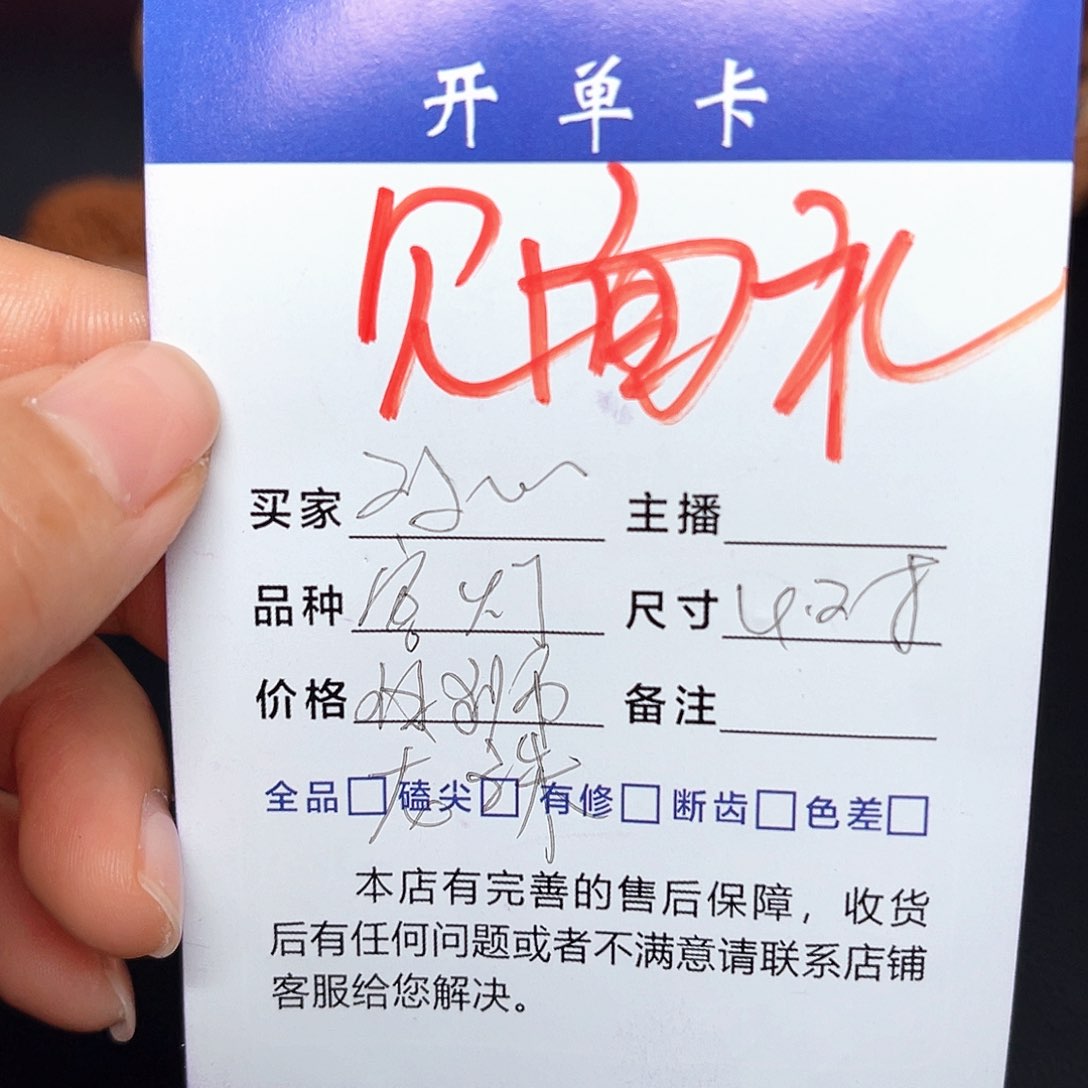 开单卡
见面礼
买家 主播
品种 官灯 尺寸 4.2寸
价格 备注
全品□磕尖□有修□断齿□色差□
本店有完善的售后保障，收货
后有任何问题或者不满意请联系店铺
客服给您解决。